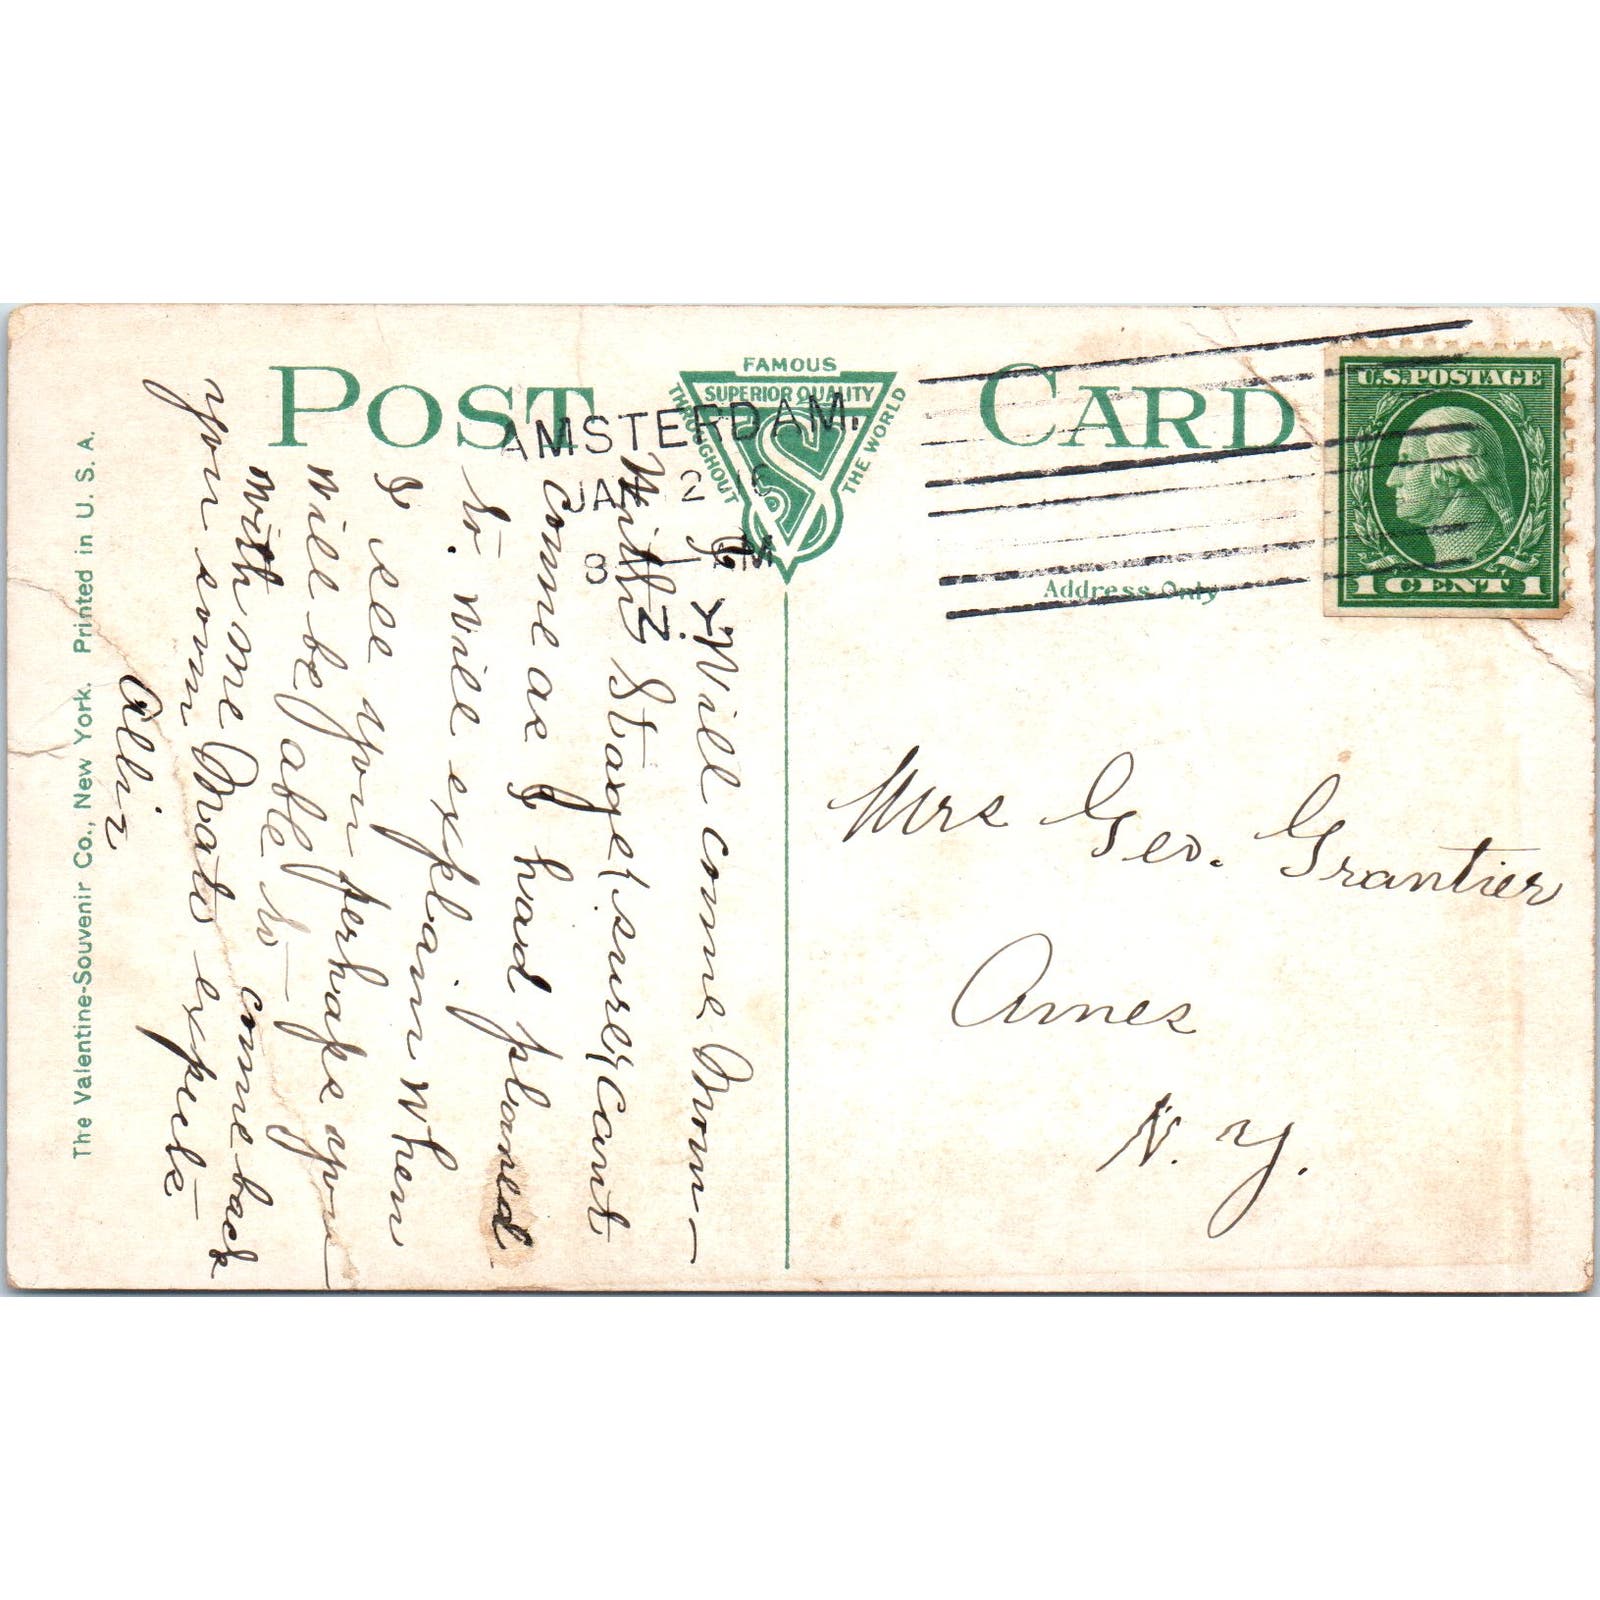 POST CARD
FAMOUS
SUPERIOR QUALITY
THROUGHOUT THE WORLD
AMSTERDAM.
JAN 2 16
8 - AM
U.S. POSTAGE
1 CENT 1
Address Only
The Valentine-Souvenir Co., New York. Printed in U. S. A.
Will come Mon-
with Stage (sure) Cant
come as I had planed
to. Will explain when
I see you perhaps you
will be able to come back
with me
you soon Mato expects
Allie
Mrs Geo. Grantier
Ames
N. Y.